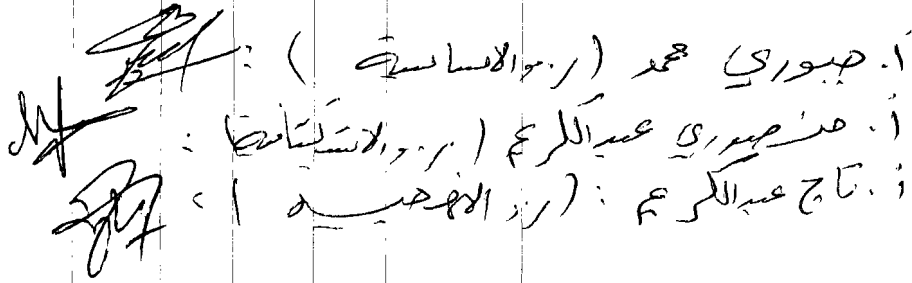 أ. جبوري محمد (ر.و الأساسية) :
أ. منصوري عبد الكريم (ر.و الاستكشافية) :
أ. تاج عبد الكريم : (ر.و الأفقية) :